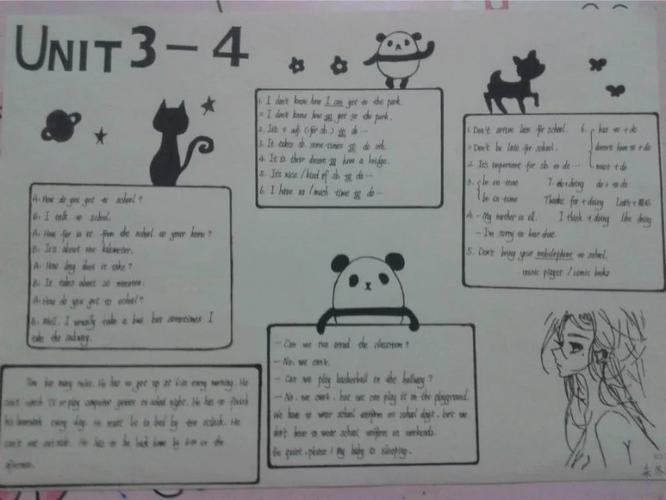 UNIT 3-4
1. I don't know how I can get to the park.
I don't know how to get to the park.
2. It's + adj (for sb.) to do …
3. It takes sb. some times to do sth.
4. It is their dream to have a bridge.
5. It's nice / kind of sb. to do …
6. I have no / much time to do …
1. Don't arrive late for school.
Don't be late for school.
2. It's important for sb. to do …
3. be on time
be in time
4. - My mother is ill.
- I'm sorry to hear that.
5. Don't bring your mobilephone to school.
music player / comic books
6. has to + do
doesn't have to + do
must + do
7. doing do → to do
Thanks for + doing Let's +
I think + doing like doing
A: How do you get to school?
B: I walk to school.
A: How far is it from the school to your home?
B: It's about one kilometer.
A: How long does it take?
B: It takes about 20 minutes.
A: How do you get to school?
B: Well, I usually take a bus but sometimes I
take the subway.
- Can we run around the classroom?
- No, we can't.
- Can we play basketball in the hallway?
- No, we can't, but we can play it in the playground.
We have to wear school uniform on school days, but we
don't have to wear school uniform on weekends.
Be quiet, please! My baby is sleeping.
Tom has many rules. He has to get up at 6:00 every morning. He
can't watch TV or play computer games on school night. He has to finish
his homework every day. He must be in bed by ten o'clock. He
can't eat outside. He has to be back home by 6:00 in the
afternoon.